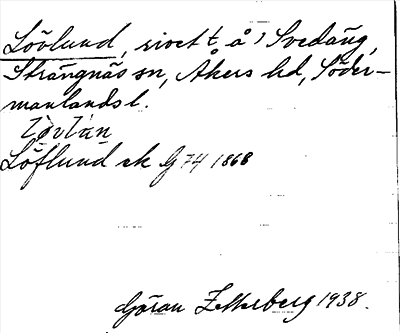 Lövlund, å Svedäng,
Strängnäs sn, Åkers hd, Söder-
manlands l.
Löflund ek G 74 1868
Göran Zetterberg 1938.